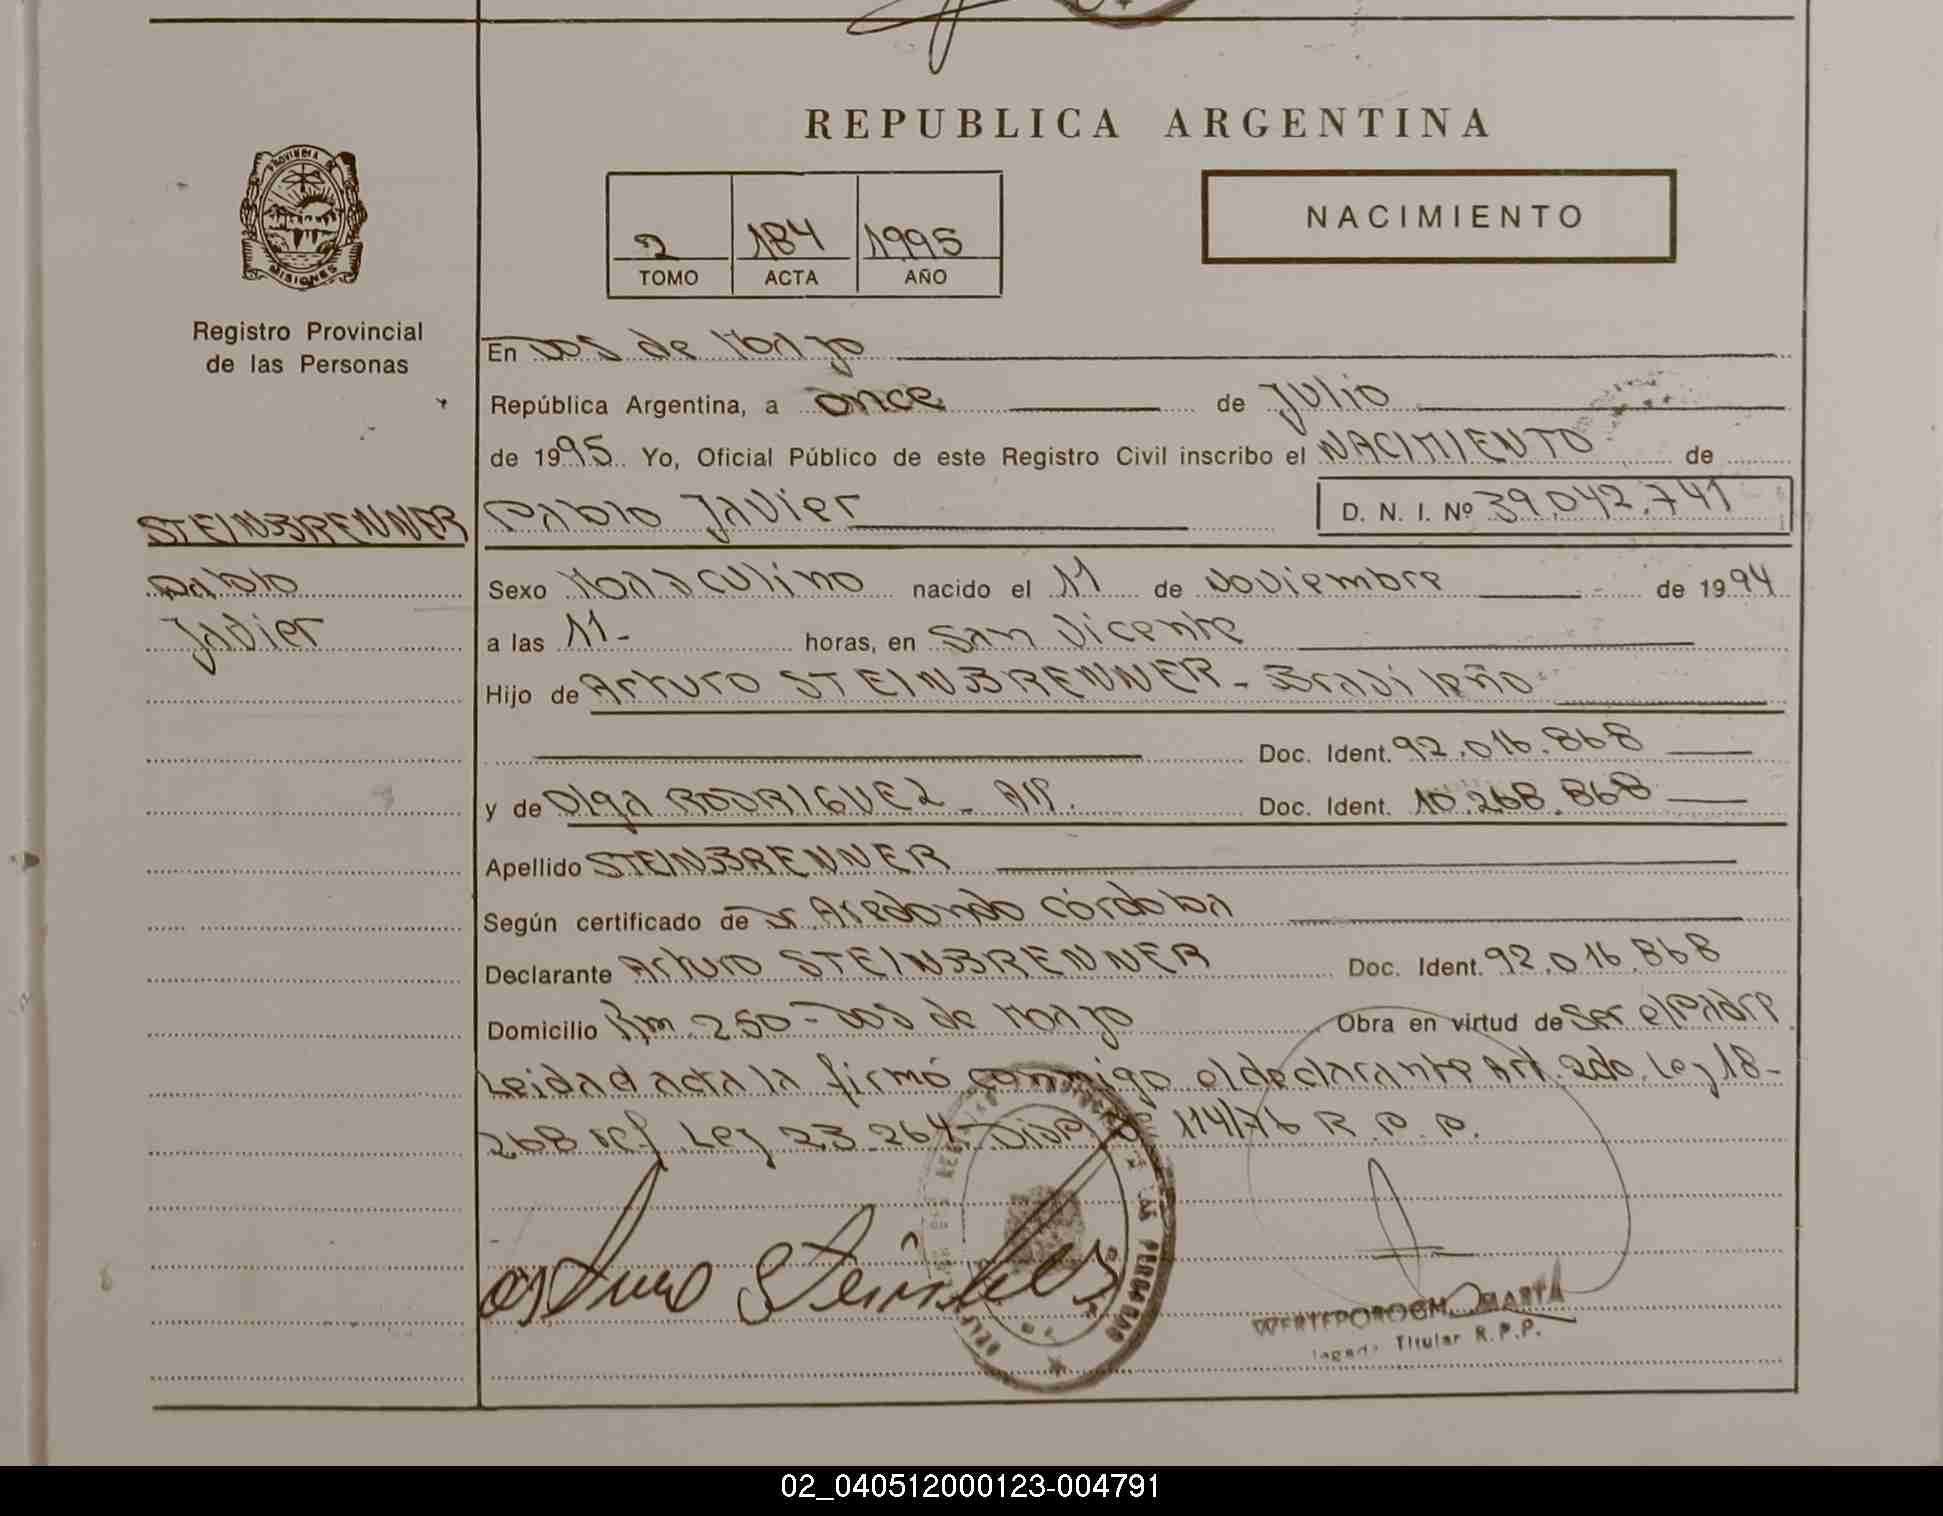 REPUBLICA ARGENTINA
PROVINCIA DE MISIONES
Registro Provincial
de las Personas
2 184 1995
TOMO ACTA AÑO
NACIMIENTO
En Dos de Marzo
República Argentina, a once de Julio
de 1995 Yo, Oficial Público de este Registro Civil inscribo el NACIMIENTO de
STEINBRENNER
Pablo
Javier
Pablo Javier D. N. I. Nº 39.042.741
Sexo Masculino nacido el 11 de Noviembre de 1994
a las 11- horas, en San Vicente
Hijo de Arturo STEINBRENNER - Brasileño
Doc. Ident. 92.016.868
y de Olga RODRIGUEZ - Doc. Ident. 10.268.868
Apellido STEINBRENNER
Según certificado de Dr. Aredondo Córdoba
Declarante Arturo STEINBRENNER Doc. Ident. 92.016.868
Domicilio Km 250 - Dos de Marzo Obra en virtud de Ser el Padre
Leida el acta la firmó conmigo el declarante Art. 2do. Ley 18-
268 ref. Ley 23.264- Disp. 114/76 R.P.P.
Arturo
MARTA
Titular R.P.P.
02_040512000123-004791